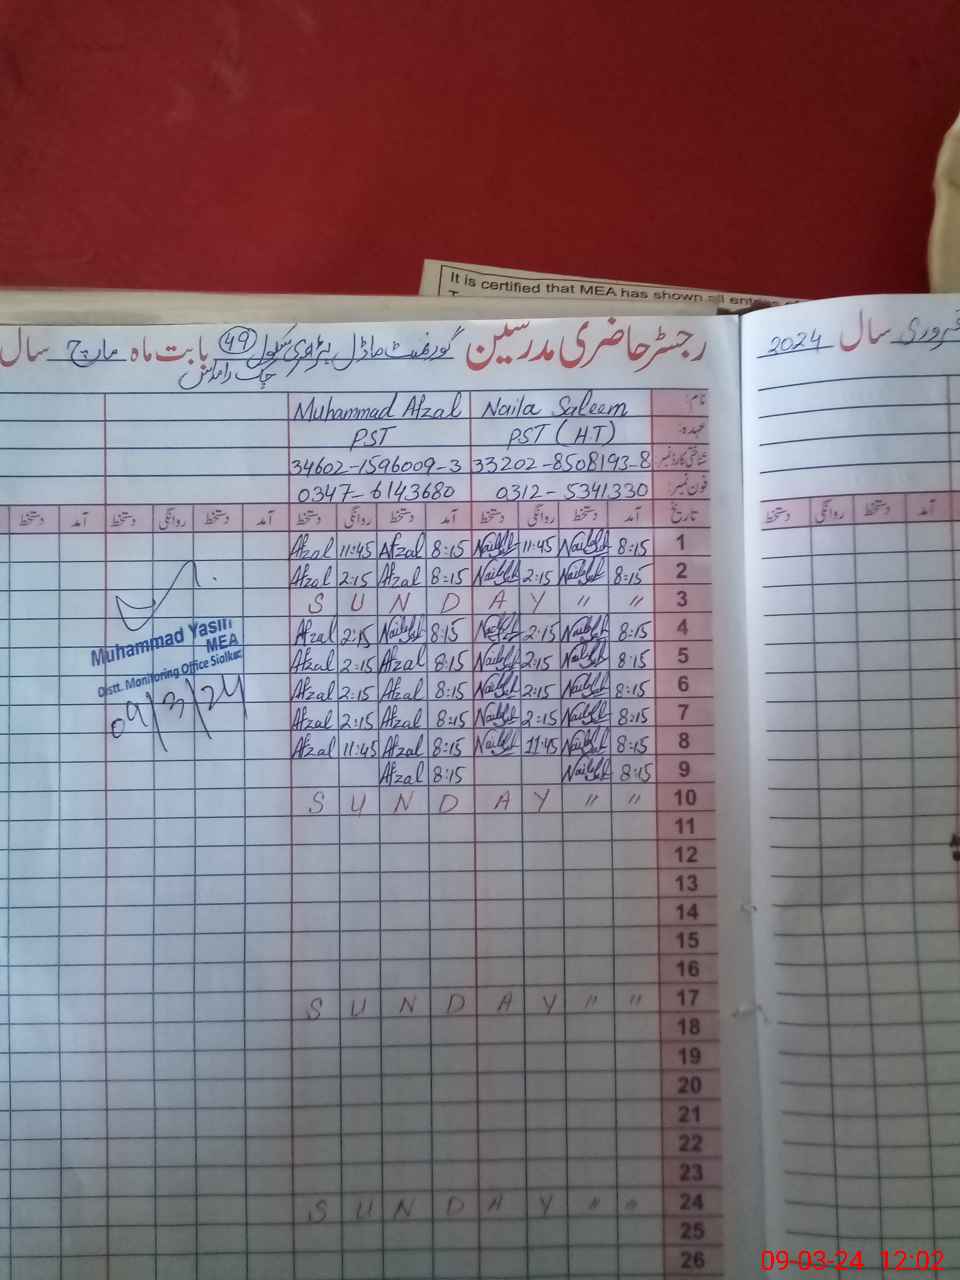 It is certified that MEA has shown all entries of
رجسٹر حاضری مدرسین گورنمنٹ ماڈل پرائمری سکول (49) بابت ماہ مارچ سال
چک رامداس
فروری سال 2024
نام: Naila Saleem Muhammad Afzal
عہدہ: PST (H.T) PST
شناختی کارڈ نمبر: 33202-8508193-8 34602-1596009-3
فون نمبر: 0312-5341330 0347-6143680
تاریخ آمد دستخط روانگی دستخط آمد دستخط روانگی دستخط آمد دستخط روانگی دستخط آمد دستخط
آمد دستخط روانگی دستخط
Afzal 11:45 Afzal 8:15 Naila 11:45 Naila 8:15 1
Afzal 2:15 Afzal 8:15 Naila 2:15 Naila 8:15 2
S U N D A Y " " 3
Afzal 2:15 Naila 8:15 Naila 2:15 Naila 8:15 4
Afzal 2:15 Afzal 8:15 Naila 2:15 Naila 8:15 5
Afzal 2:15 Afzal 8:15 Naila 2:15 Naila 8:15 6
Afzal 2:15 Afzal 8:15 Naila 2:15 Naila 8:15 7
Afzal 11:45 Afzal 8:15 Naila 11:45 Naila 8:15 8
Afzal 8:15 Naila 8:15 9
S U N D A Y " " 10
11
12
13
14
15
16
S U N D A Y " " 17
18
19
20
21
22
23
S U N D A Y " " 24
25
26
Muhammad Yasin
MEA
Distt. Monitoring Office Sialkot
09/3/24
09-03-24 12:02